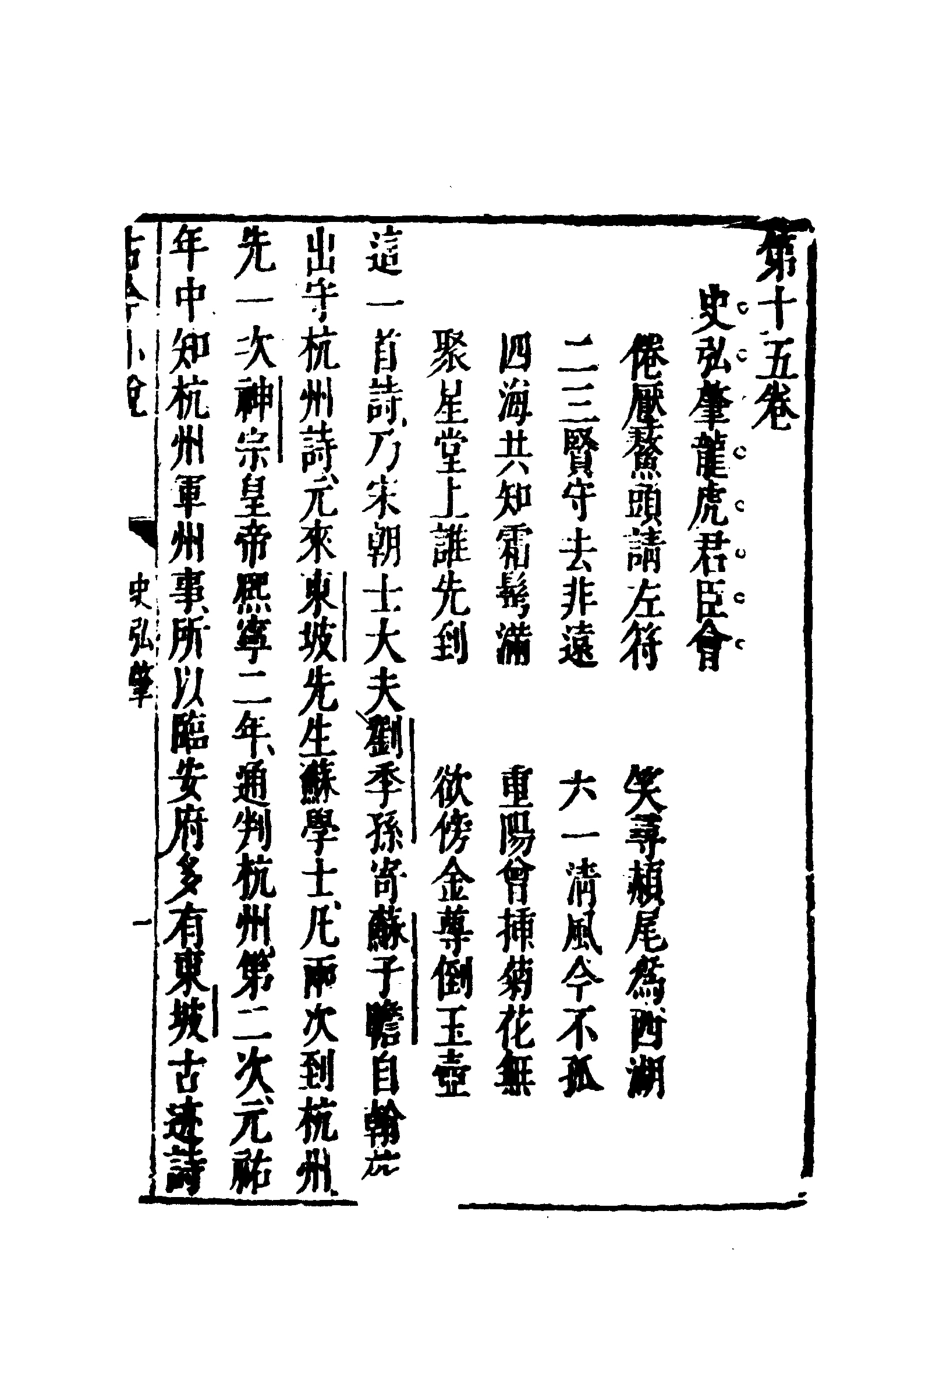 第十五卷
史弘肇龍虎君臣會
倦壓鰲頭請左符　笑尋赬尾爲西湖
二三賢守去非遠　六一清風今不孤
四海共知霜鬢滿　重陽曾揷菊花無
聚星堂上誰先到　欲傍金尊倒玉壺
這一首詩、乃宋朝士大夫劉季孫寄蘇子瞻自翰苑
出守杭州詩、元來東坡先生蘇學士、凡兩次到杭州、
先一次神宗皇帝熙寧二年、通判杭州、第二次、元祐
年中知杭州軍州事、所以臨安府多有東坡古迹詩
古今小說　史弘肇　一